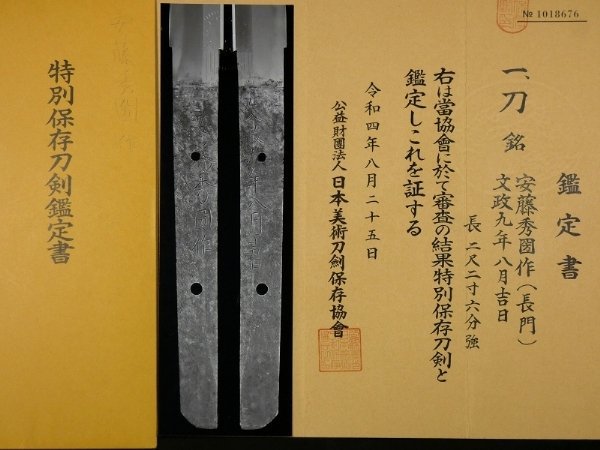 № 1018676
鑑定書
一、刀 銘
安藤秀圀作(長門)
文政九年八月吉日
長 二尺二寸六分強
右は當協會に於て審査の結果特別保存刀剣と
鑑定しこれを証する
令和四年八月二十五日
公益財團法人 日本美術刀劍保存協會
特別保存刀剣鑑定書